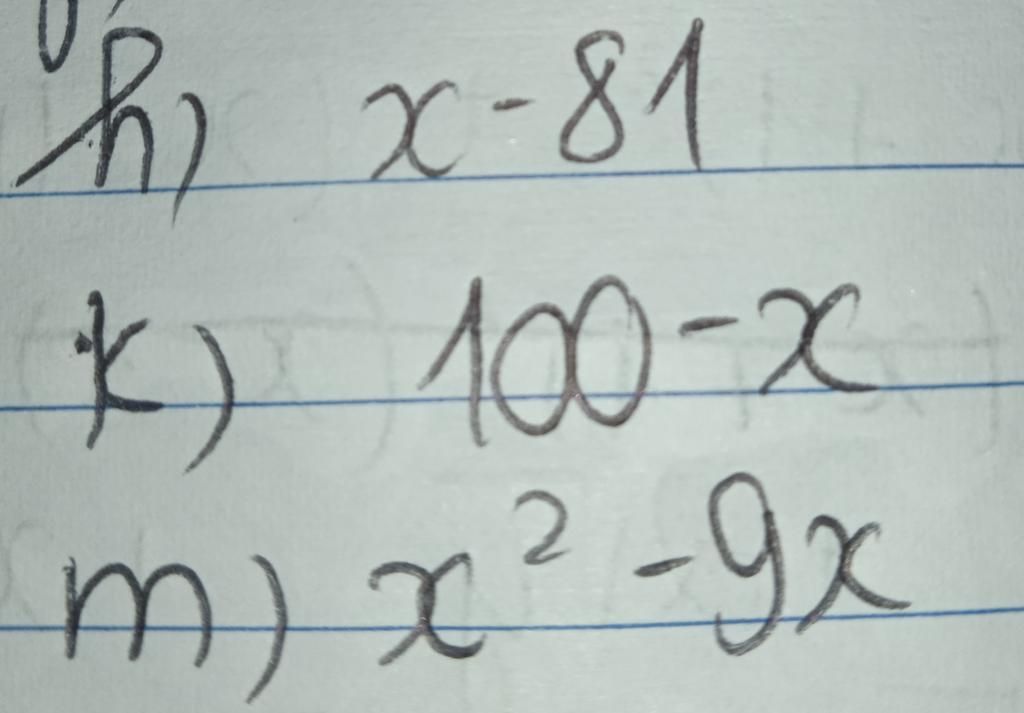 h) x - 81
k) 100 - x
m) x² - 9x